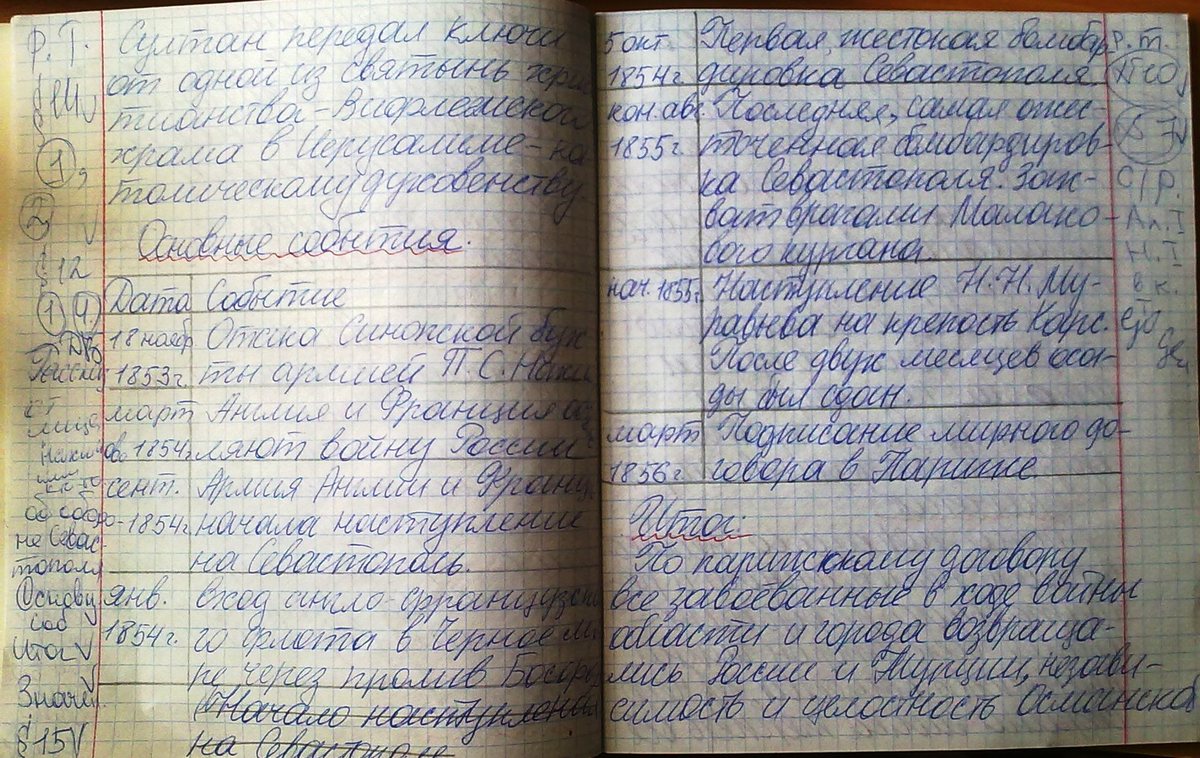 Р.Т.
§ 14
1,
2
§ 12
1 9
Рассказ
об оборо-
не Севас-
тополя
Основн
соб
Итог
Значен
§ 15
Султан передал ключи
от одной из святынь хрис
тианства - Вифлеемского
храма в Иерусалиме - ка
толическому духовенству.
Основные события.
Дата Событие
18 нояб Отака Синопской бух
1853 г. ты армией П.С. Нахи
март Англия и Франция объя
1854 г. ляют войну России
сент. Армия Англии и Франци
1854 г. начала наступление
на Севастополь.
янв. вход англо-французско
1854 г. го флота в Черное мо
ре через пролив Босфор
Начало наступления
на Севастополь
5 окт. Первая, жестокая бомбар
1854 г. дировка Севастополя.
кон. авг. Последняя, самая ожес-
1855 г. точенная бомбардиров-
ка Севастополя. Зах-
ват врагами Малахо-
вого кургана.
нач. 1855 г. Наступление Н.Н. Му-
равьева на крепость Карс.
После двух месяцев оса-
ды был сдан.
март Подписание мирного до-
1856 г. говора в Париже
Итог:
По парижскому договору
все завоёванные в ходе войны
области и города возвраща-
лись России и Турции, незави-
симость и целостность Османской
Р.Т.
№ 10
§ 7
с/р.
Ал. I
Н. I
в к.